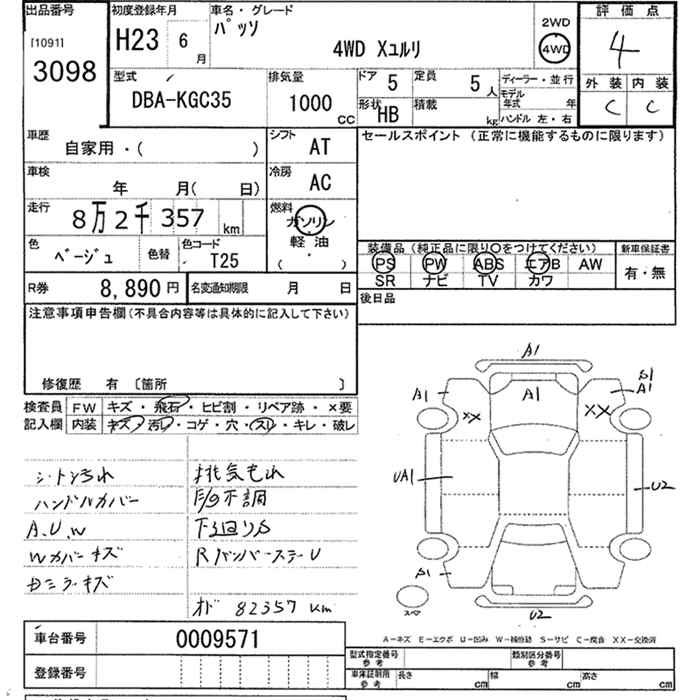 出品番号 初度登録年月 車名・グレード 2WD 評価点
[1091] H23 6月 パッソ 4WD 4
3098 4WD Xユルリ
型式 排気量 ドア 5 定員 5人 ディーラー・並行 外装 内装
DBA-KGC35 1000 CC 形状 HB 積載 kg モデル年式 年 C C
ハンドル 左・右
車歴 自家用・( ) シフト AT セールスポイント (正常に機能するものに限ります)
車検 年 月( 日) 冷房 AC
走行 8万2千357 km 燃料 ガソリン
軽油
( )
色 ベージュ 色替 色コード T25
装備品(純正品に限り○をつけてください) 新車保証書
PS PW ABS エアB AW 有・無
SR ナビ TV カワ
R券 8,890円 名変通知期限 月 日 後日品
注意事項申告欄(不具合内容等は具体的に記入して下さい)
修復歴 有 〔箇所 〕
検査員 FW キズ・飛石・ヒビ割・リペア跡・×要
記入欄 内装 キズ・汚レ・コゲ・穴・スレ・キレ・破レ
シート汚れ 排気もれ
ハンドルカバー 不調
A.U.W 下廻りS
Wカバーキズ RバンパーステーU
キズ
オド 82357 km
A1
A1 A1 A1
XX XX
UA1 U2
スペア
U2
A-キズ E-エクボ U-凹み W-補修跡 S-サビ C-腐食 XX-交換済
車台番号 0009571
型式指定番号 参考 類別区分番号 参考
登録番号
車庫証明用 参考 長さ cm 幅 cm 高さ cm